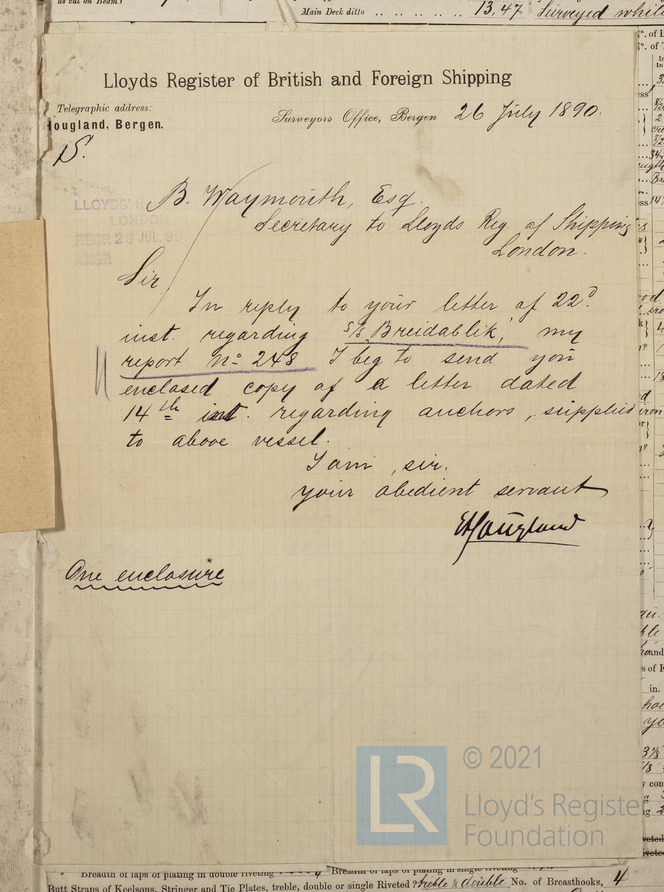 Main Deck ditto .. .. .. .. .. 13,47 Surveyed while
Lloyds Register of British and Foreign Shipping
Telegraphic address:
Hougland, Bergen.
Surveyors Office, Bergen 26 July 1890.
LLOYDS'
LONDON
28 JUL 90
B. Waymouth, Esq
Secretary to Lloyds Reg. of Shipping
London.
Sir
In reply to your letter of 22d
inst. regarding s/s Breidablik, my
report No 248 I beg to send you
enclosed copy of a letter dated
14th inst. regarding anchors, supplied
to above vessel.
I am, sir.
your obedient servant
EHougland
One enclosure
LR © 2021
Lloyd's Register
Foundation
Breadth of laps of plating in double riveting Breadth of laps of plating in single riveting
Butt Straps of Keelsons, Stringer and Tie Plates, treble, double or single Riveted? treble & double No. of Breasthooks, 4